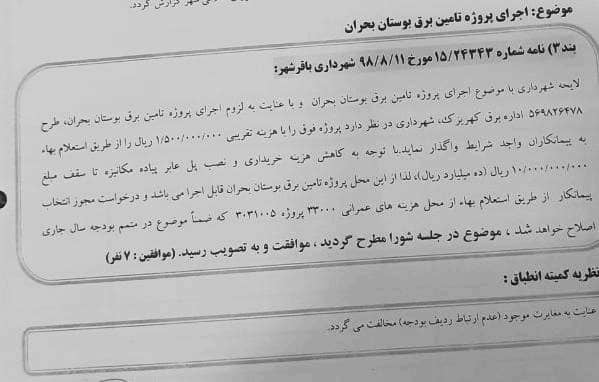 شهر گزارش گردد.
موضوع: اجرای پروژه تامین برق بوستان بحران
بند۳) نامه شماره ۱۵/۲۴۳۴۳ مورخ ۹۸/۸/۱۱ شهرداری باقرشهر:
لایحه شهرداری با موضوع اجرای پروژه تامین برق بوستان بحران و با عنایت به لزوم اجرای پروژه تامین برق بوستان بحران، طرح
۵۶۹۸۲۶۴۷۸ اداره برق کهریزک، شهرداری در نظر دارد پروژه فوق را با هزینه تقریبی ۱/۵۰۰/۰۰۰/۰۰۰ ریال را از طریق استعلام بهاء
به پیمانکاران واجد شرایط واگذار نماید.با توجه به کاهش هزینه خریداری و نصب پل عابر پیاده مکانیزه تا سقف مبلغ
۱۰/۰۰۰/۰۰۰/۰۰۰ ریال (ده میلیارد ریال)، لذا از این محل پروژه تامین برق بوستان بحران قابل اجرا می باشد و درخواست مجوز انتخاب
پیمانکار از طریق استعلام بهاء از محل هزینه های عمرانی ۳۳۰۰۰ پروژه ۳۰۳۱۰۰۵ که ضمناً موضوع در متمم بودجه سال جاری
اصلاح خواهد شد ، موضوع در جلسه شورا مطرح گردید ، موافقت و به تصویب رسید. (موافقین : ۷ نفر)
نظریه کمیته انطباق :
عنایت به مغایرت موجود (عدم ارتباط ردیف بودجه) مخالفت می گردد.